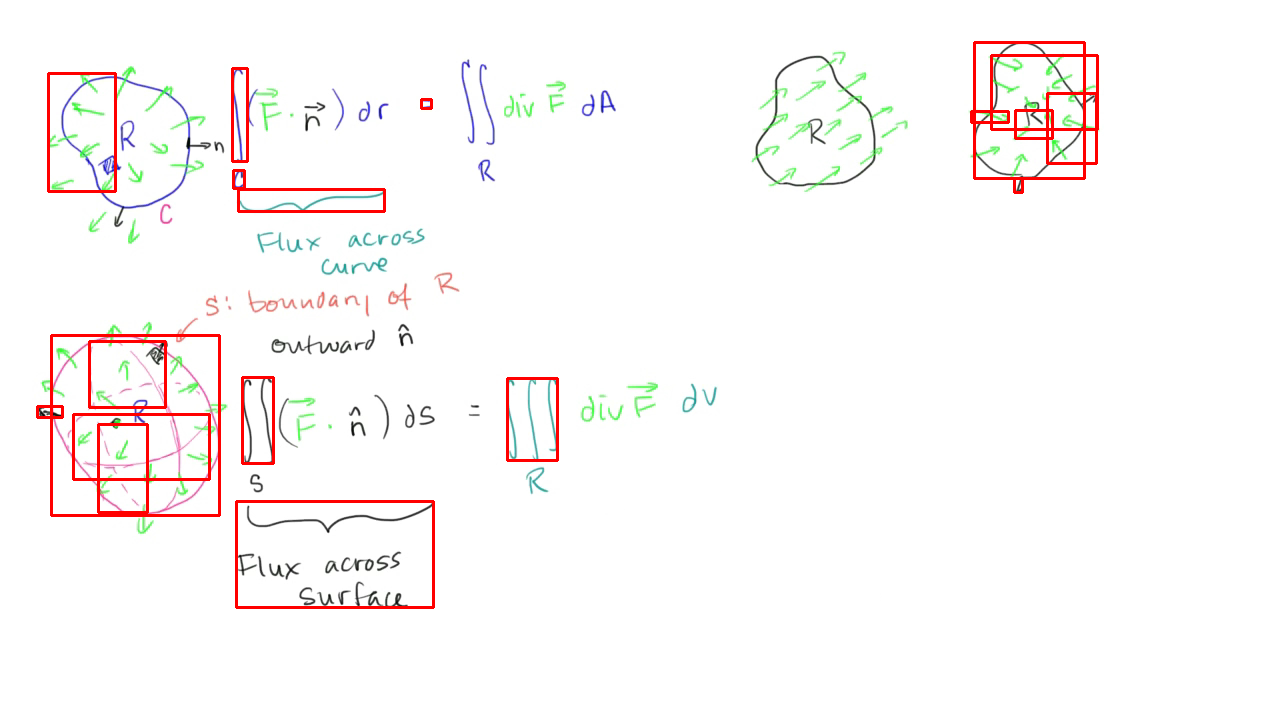 R
n
C
∫ (F⃗ · n⃗) dr = ∬ div F⃗ dA
C
R
R
R
Flux across
curve
S: boundary of R
outward n̂
R
∬ (F⃗ · n̂) dS = ∭ div F⃗ dV
S
R
Flux across
surface